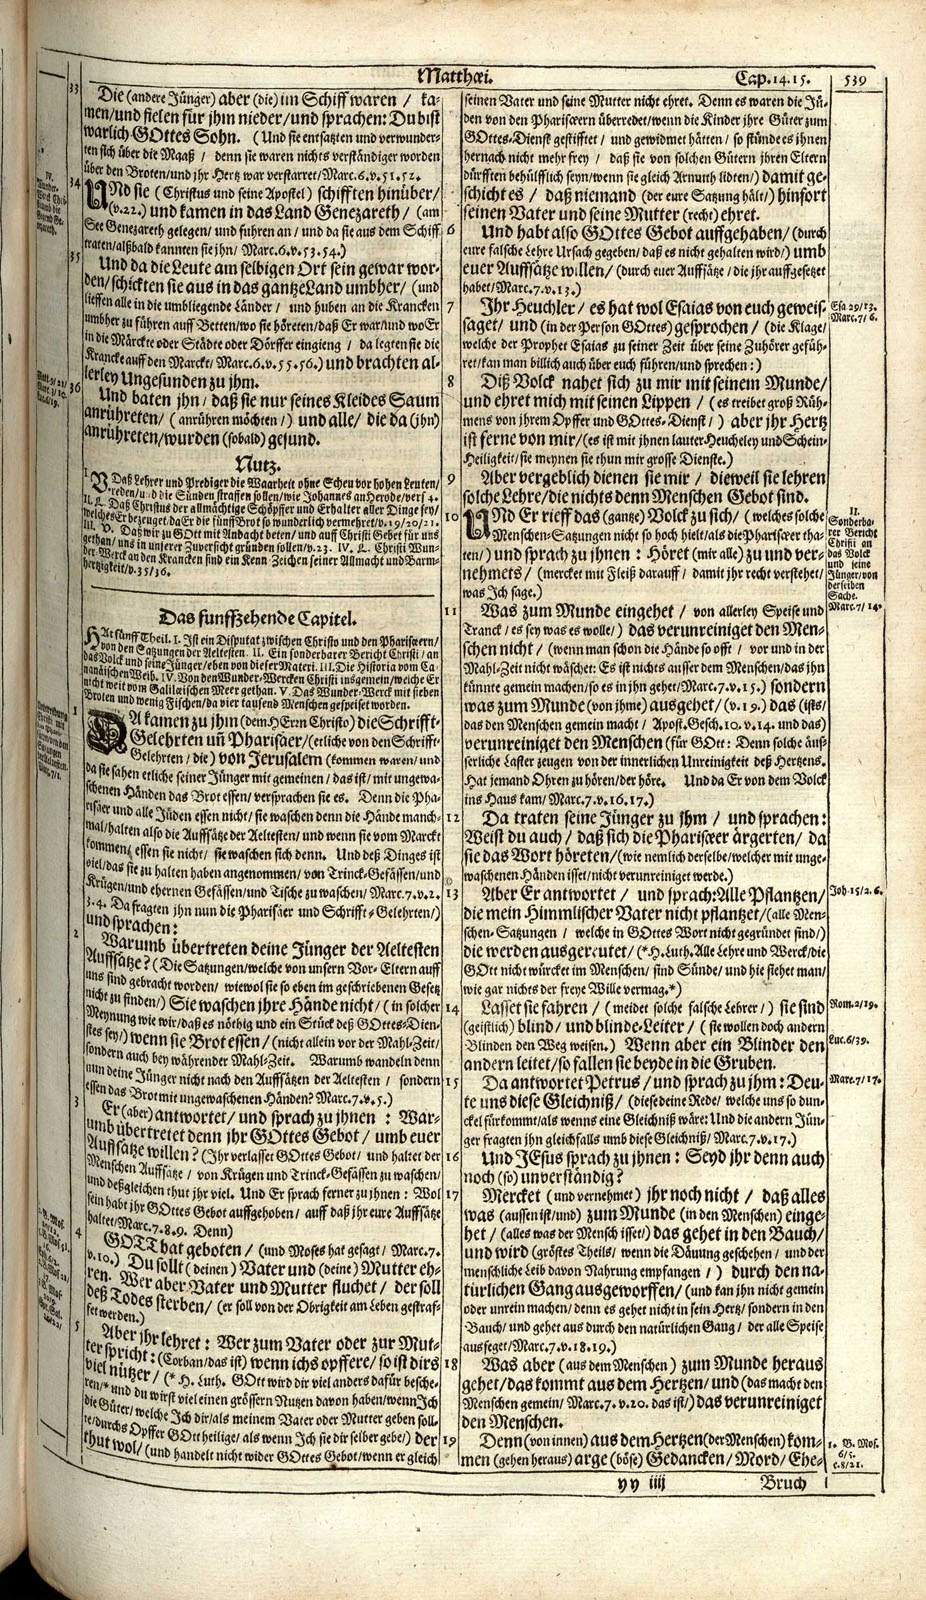 Matthæi. Cap. 14. 15. 539
33
Die (andere Jünger) aber (die) im Schiff waren / ka-
men/und fielen für jhm nieder/und sprachen: Du bist
warlich GOttes Sohn. (Und sie entsatzten und verwunder-
ten sich über die Maaß / denn sie waren nichts verständiger worden
über den Broten/und jhr Hertz war verstarret/Marc.6.v.51.52.
34
UNd sie (Christus und seine Apostel) schifften hinüber/
(v.22.) und kamen in das Land Genezareth/ (am
See Genezareth gelegen/ und fuhren an / und da sie aus dem Schiff
traten/alßbald kannten sie jhn/ Marc.6.v.53.54.)
35
Und da die Leute am selbigen Ort sein gewar wor-
den/schickten sie aus in das gantze Land umbher/ (und
lieffen alle in die umbliegende Länder / und huben an die Krancken
umbher zu führen auff Betten/wo sie höreten/daß Er war/und wo Er
in die Märckte oder Städte oder Dörffer eingieng / da legten sie die
Krancke auff den Marckt/ Marc.6.v.55.56.) und brachten al-
lerley Ungesunden zu jhm.
36
Und baten jhn/ daß sie nur seines Kleides Saum
anrühreten/ (anrühren möchten/) und alle/ die da (jhn)
anrühreten/wurden (sobald) gesund.
Nutz.
I. V. Daß Lehrer und Prediger die Waarheit ohne Scheu vor hohen Leuten/
reden/und die Sünden straffen sollen/wie Johannes an Herode/vers 4.
II. L. Daß Christus der allmächtige Schöpffer und Erhalter aller Dinge sey/
welches Er bezeuget/da Er die fünff Brot so wunderlich vermehret/v.19/20/21.
III. V. Daß wir zu GOtt mit Andacht beten/ und auff Christi Gebet für uns
gethan/ uns in unserer Zuversicht gründen sollen/v.23. IV. L. Christi Wun-
der-Werck an den Krancken sind ein Kenn-Zeichen seiner Allmacht und Barm-
hertzigkeit/v.35/36.
Das funffzehende Capitel.
HAt fünff Theil. I. Ist ein Disputat zwischen Christo und den Phariseern/
von den Satzungen der Aeltesten. II. Ein sonderbarer Bericht Christi/ an
das Volck und seine Jünger/eben von dieser Materi. III. Die Historia vom Ca-
nanäischen Weib. IV. Von den Wunder-Wercken Christi insgemein/welche Er
nicht weit vom Galilæischen Meer gethan. V. Das Wunder-Werck mit sieben
Broten und wenig Fischen/da vier tausend Menschen gespeiset worden.
1
DA kamen zu jhm (dem HErrn Christo) die Schrifft-
Gelehrten uñ Pharisäer/(etliche von den Schrifft-
Gelehrten / die) von Jerusalem (kommen waren/ und
da sie sahen etliche seiner Jünger mit gemeinen/ das ist/ mit ungewa-
schenen Händen das Brot essen/ versprachen sie es. Denn die Pha-
risäer und alle Jüden essen nicht/ sie waschen denn die Hände manch-
mal/halten also die Auffsätze der Aeltesten/ und wenn sie vom Marckt
kommen/ essen sie nicht/ sie waschen sich denn. Und deß Dinges ist
viel/das sie zu halten haben angenommen/ von Trinck-Gefässen/und
Krügen/und ehernen Gefässen/und Tische zu waschen/ Marc.7.v.2.
3.4. Da fragten jhn nun die Pharisäer und Schrifft-Gelehrten/)
und sprachen:
2
Warumb übertreten deine Jünger der Aeltesten
Auffsätze? (Die Satzungen/welche von unsern Vor-Eltern auff
uns sind gebracht worden/ wiewol sie so eben im geschriebenen Gesetz
nicht zu finden/) Sie waschen ihre Hände nicht/ (in solcher
Meynung wie wir/daß es nöthig und ein Stück deß GOttes-Dien-
stes sey/) wenn sie Brot essen/ (nicht allein vor der Mahl-Zeit/
sondern auch bey währender Mahl-Zeit. Warumb wandeln denn
nun deine Jünger nicht nach den Auffsätzen der Aeltesten / sondern
essen das Brot mit ungewaschenen Händen? Marc.7.v.5.)
3
Er (aber) antwortet/ und sprach zu jhnen: War-
umb übertretet denn jhr GOttes Gebot / umb euer
Auffsätze willen? (Ihr verlasset GOttes Gebot/ und haltet der
Menschen Auffsätze / von Krügen und Trinck-Gefässen zu waschen/
und deßgleichen thut jhr viel. Und Er sprach ferner zu jhnen: Wol
fein habt jhr GOttes Gebot auffgehoben/ auff daß jhr eure Auffsätze
haltet/Marc.7.8.9. Denn)
4
GOTT hat geboten/ (und Moses hat gesagt/ Marc.7.
v.10.) Du sollt (deinen) Vater und (deine) Mutter eh-
ren. Wer aber Vater und Mutter fluchet/ der soll
deß Todes sterben/ (er soll von der Obrigkeit am Leben gestraf-
fet werden.)
5
Aber jhr lehret: Wer zum Vater oder zur Mut-
ter spricht: (Corban/das ist) wenn ichs opffere/ so ist dirs
viel nützer/ (* H. Luth. GOtt wird dir viel anders dafür besche-
ren/* und du wirst viel einen grössern Nutzen davon haben/wenn Ich
die Güter/ welche Ich dir/als meinem Vater oder Mutter geben soll-
te/durchs Opffer GOtt heilige/ als wenn Ich sie dir selber gebe/) der
thut wol/ (und handelt nicht wider GOttes Gebot/wenn er gleich
seinen Vater und seine Mutter nicht ehret. Denn es waren die Jü-
den von den Phariseern überredet/wenn die Kinder jhre Güter zum
GOttes-Dienst gestifftet / und gewidmet hätten / so stünde es jhnen
hernach nicht mehr frey / daß sie von solchen Gütern jhren Eltern
dürfften behülfflich seyn/wenn sie gleich Armuth lidten/) damit ge-
schicht es / daß niemand (der eure Satzung hält/) hinfort
seinen Vater und seine Mutter (recht) ehret.
6
Und habt also GOttes Gebot auffgehaben/ (durch
eure falsche Lehre Ursach gegeben/ daß es nicht gehalten wird/) umb
euer Auffsätze willen/ (durch euer Auffsätze / die jhr auffgesetzet
habet/Marc.7.v.13.)
7
Jhr Heuchler/ es hat wol Esaias von euch geweis-
saget/ und (in der Person GOttes) gesprochen/ (die Klage/
welche der Prophet Esaias zu seiner Zeit über seine Zuhörer gefüh-
ret/kan man billich auch über euch führen/und sprechen:)
Esa 29/13.
Marc.7/6.
8
Diß Volck nahet sich zu mir mit seinem Munde/
und ehret mich mit seinen Lippen/ (es treibet groß Rüh-
mens von jhrem Opffer und GOttes-Dienst/) aber jhr Hertz
ist ferne von mir/(es ist mit jhnen lauter Heucheley und Schein-
Heiligkeit/sie meynen sie thun mir grosse Dienste.)
9
Aber vergeblich dienen sie mir/ dieweil sie lehren
solche Lehre/die nichts denn Menschen Gebot sind.
10
UNd Er rieff das (gantze) Volck zu sich/ (welches solche
Menschen-Satzungen nicht so hoch hielt/als die Phariseer tha-
ten/) und sprach zu jhnen: Höret (mir alle) zu und ver-
nehmets/ (mercket mit Fleiß darauff / damit jhr recht verstehet/
was Ich sage.)
II.
Sonderba-
rer Bericht
Christi an
das Volck
und seine
Jünger/von
derselben
Sache.
Marc.7/14.
11
Was zum Munde eingehet/ (von allerley Speise und
Tranck/ es sey was es wolle/) das verunreiniget den Men-
schen nicht/ (wenn man schon die Hände so offt / vor und in der
Mahl-Zeit nicht wäschet: Es ist nichts ausser dem Menschen/das jhn
könnte gemein machen/so es in jhn gehet/Marc.7.v.15.) sondern
was zum Munde (von jhme) ausgehet/ (v.19.) das (ists/
das den Menschen gemein macht / Apost.Gesch.10.v.14. und das)
verunreiniget den Menschen (für GOtt: Denn solche äus-
serliche Laster zeugen von der innerlichen Unreinigkeit deß Hertzens.
Hat jemand Ohren zu hören/der höre. Und da Er von dem Volck
ins Haus kam/ Marc.7.v.16.17.)
12
Da traten seine Jünger zu jhm / und sprachen:
Weist du auch/ daß sich die Phariseer ärgerten/ da
sie das Wort höreten/(wie nemlich derselbe/welcher mit unge-
waschenen Händen isset/nicht verunreiniget werde.)
13
Aber Er antwortet/ und sprach: Alle Pflantzen/
die mein Himmlischer Vater nicht pflantzet/(alle Men-
schen-Satzungen / welche in GOttes Wort nicht gegründet sind/)
die werden ausgereutet/ (* H. Luth. Alle Lehre und Werck/die
GOtt nicht würcket im Menschen/ sind Sünde/ und hie siehet man/
wie gar nichts der freye Wille vermag.*)
Joh. 15/2.6.
14
Lasset sie fahren/ (meidet solche falsche Lehrer/) sie sind
(geistlich) blind/ und blinde-Leiter/ (sie wollen doch andern
Blinden den Weg weisen.) Wenn aber ein Blinder den
andern leitet/ so fallen sie beyde in die Gruben.
Rom.2/19.
Luc.6/39.
15
Da antwortet Petrus / und sprach zu jhm: Deu-
te uns diese Gleichniß/ (diese deine Rede/ welche uns so dun-
ckel fürkommt/als wenns eine Gleichniß wäre: Und die andern Jün-
ger fragten jhn gleichfalls umb diese Gleichniß/ Marc.7.v.17.)
Marc.7/17.
16
Und JEsus sprach zu jhnen: Seyd jhr denn auch
noch (so) unverständig?
17
Mercket (und vernehmet) jhr noch nicht/ daß alles
was (aussen ist/und) zum Munde (in den Menschen) einge-
het/ (alles was der Mensch isset/) das gehet in den Bauch/
und wird (gröstes Theils/ wenn die Däuung geschehen/ und der
menschliche Leib davon Nahrung empfangen/) durch den na-
türlichen Gang ausgeworffen/ (und kan jhn nicht gemein
oder unrein machen/ denn es gehet nicht in sein Hertz/ sondern in den
Bauch/ und gehet aus durch den natürlichen Gang / der alle Speise
ausfeget/Marc.7.v.18.19.)
18
Was aber (aus dem Menschen) zum Munde heraus
gehet/das kommt aus dem Hertzen/ und (das macht den
Menschen gemein/ Marc.7.v.20. das ist/) das verunreiniget
den Menschen.
19
Denn (von innen) aus dem Hertzen (der Menschen) kom-
men (gehen heraus) arge (böse) Gedancken/ Mord/ Ehe-
1. B. Mos.
6/5.
c.8/21.
yy iiij Bruch